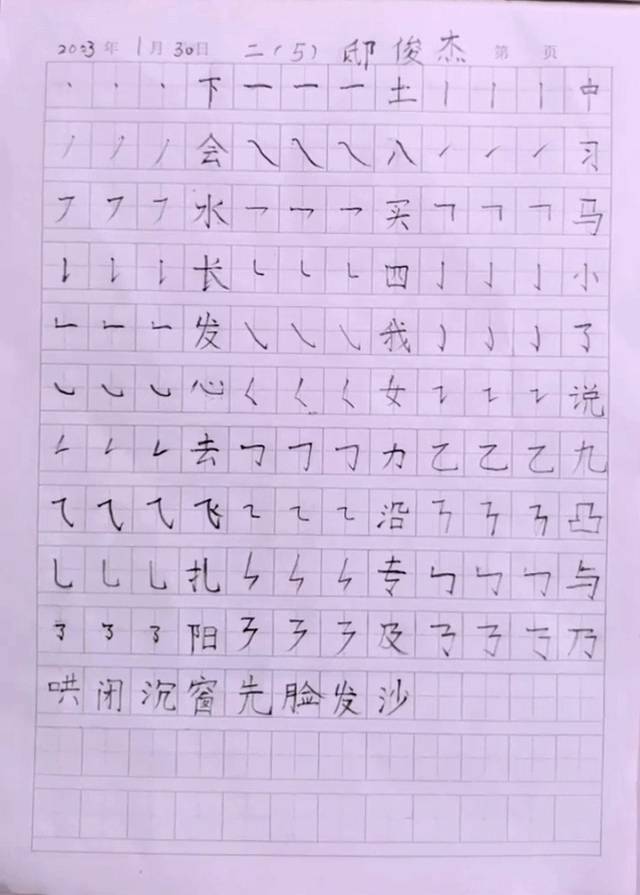 2023年 1月30日 二(5) 邸俊杰 第 页
丶 丶 丶 下 一 一 一 土 丨 丨 丨 中
丿 丿 丿 会 ㇏ ㇏ ㇏ 八 ㇀ ㇀ ㇀ 习
㇇ ㇇ ㇇ 水 乛 乛 乛 买 𠃍 𠃍 𠃍 马
𠄌 𠄌 𠄌 长 ㇗ ㇗ ㇗ 四 亅 亅 亅 小
㇗ ㇗ ㇗ 发 ㇂ ㇂ ㇂ 我 ㇁ ㇁ ㇁ 了
㇃ ㇃ ㇃ 心 ㇛ ㇛ ㇛ 女 ㇊ ㇊ ㇊ 说
㇜ ㇜ ㇜ 去 ㇆ ㇆ ㇆ 力 乙 乙 乙 九
⺄ ⺄ ⺄ 飞 ㇍ ㇍ ㇍ 沿 ㇅ ㇅ ㇅ 凸
乚 乚 乚 扎 ㇞ ㇞ ㇞ 专 ㇉ ㇉ ㇉ 与
㇌ ㇌ ㇌ 阳 ㇋ ㇋ ㇋ 及 ㇡ ㇡ ㇡ 乃
哄 闭 沉 窗 先 脸 发 沙